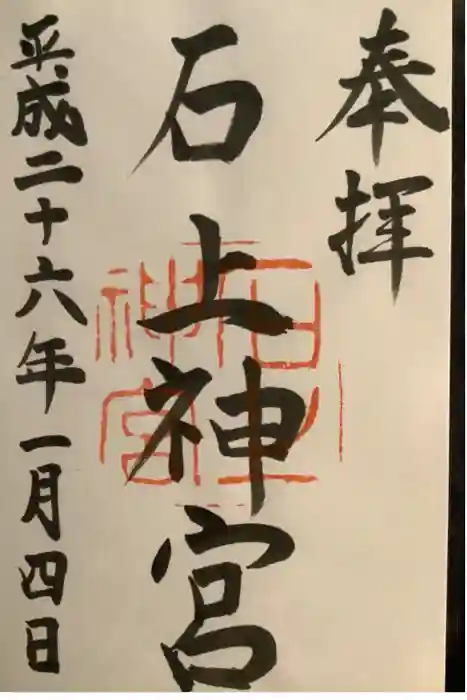 奉拝
石上神宮
平成二十六年一月四日
石上神宮